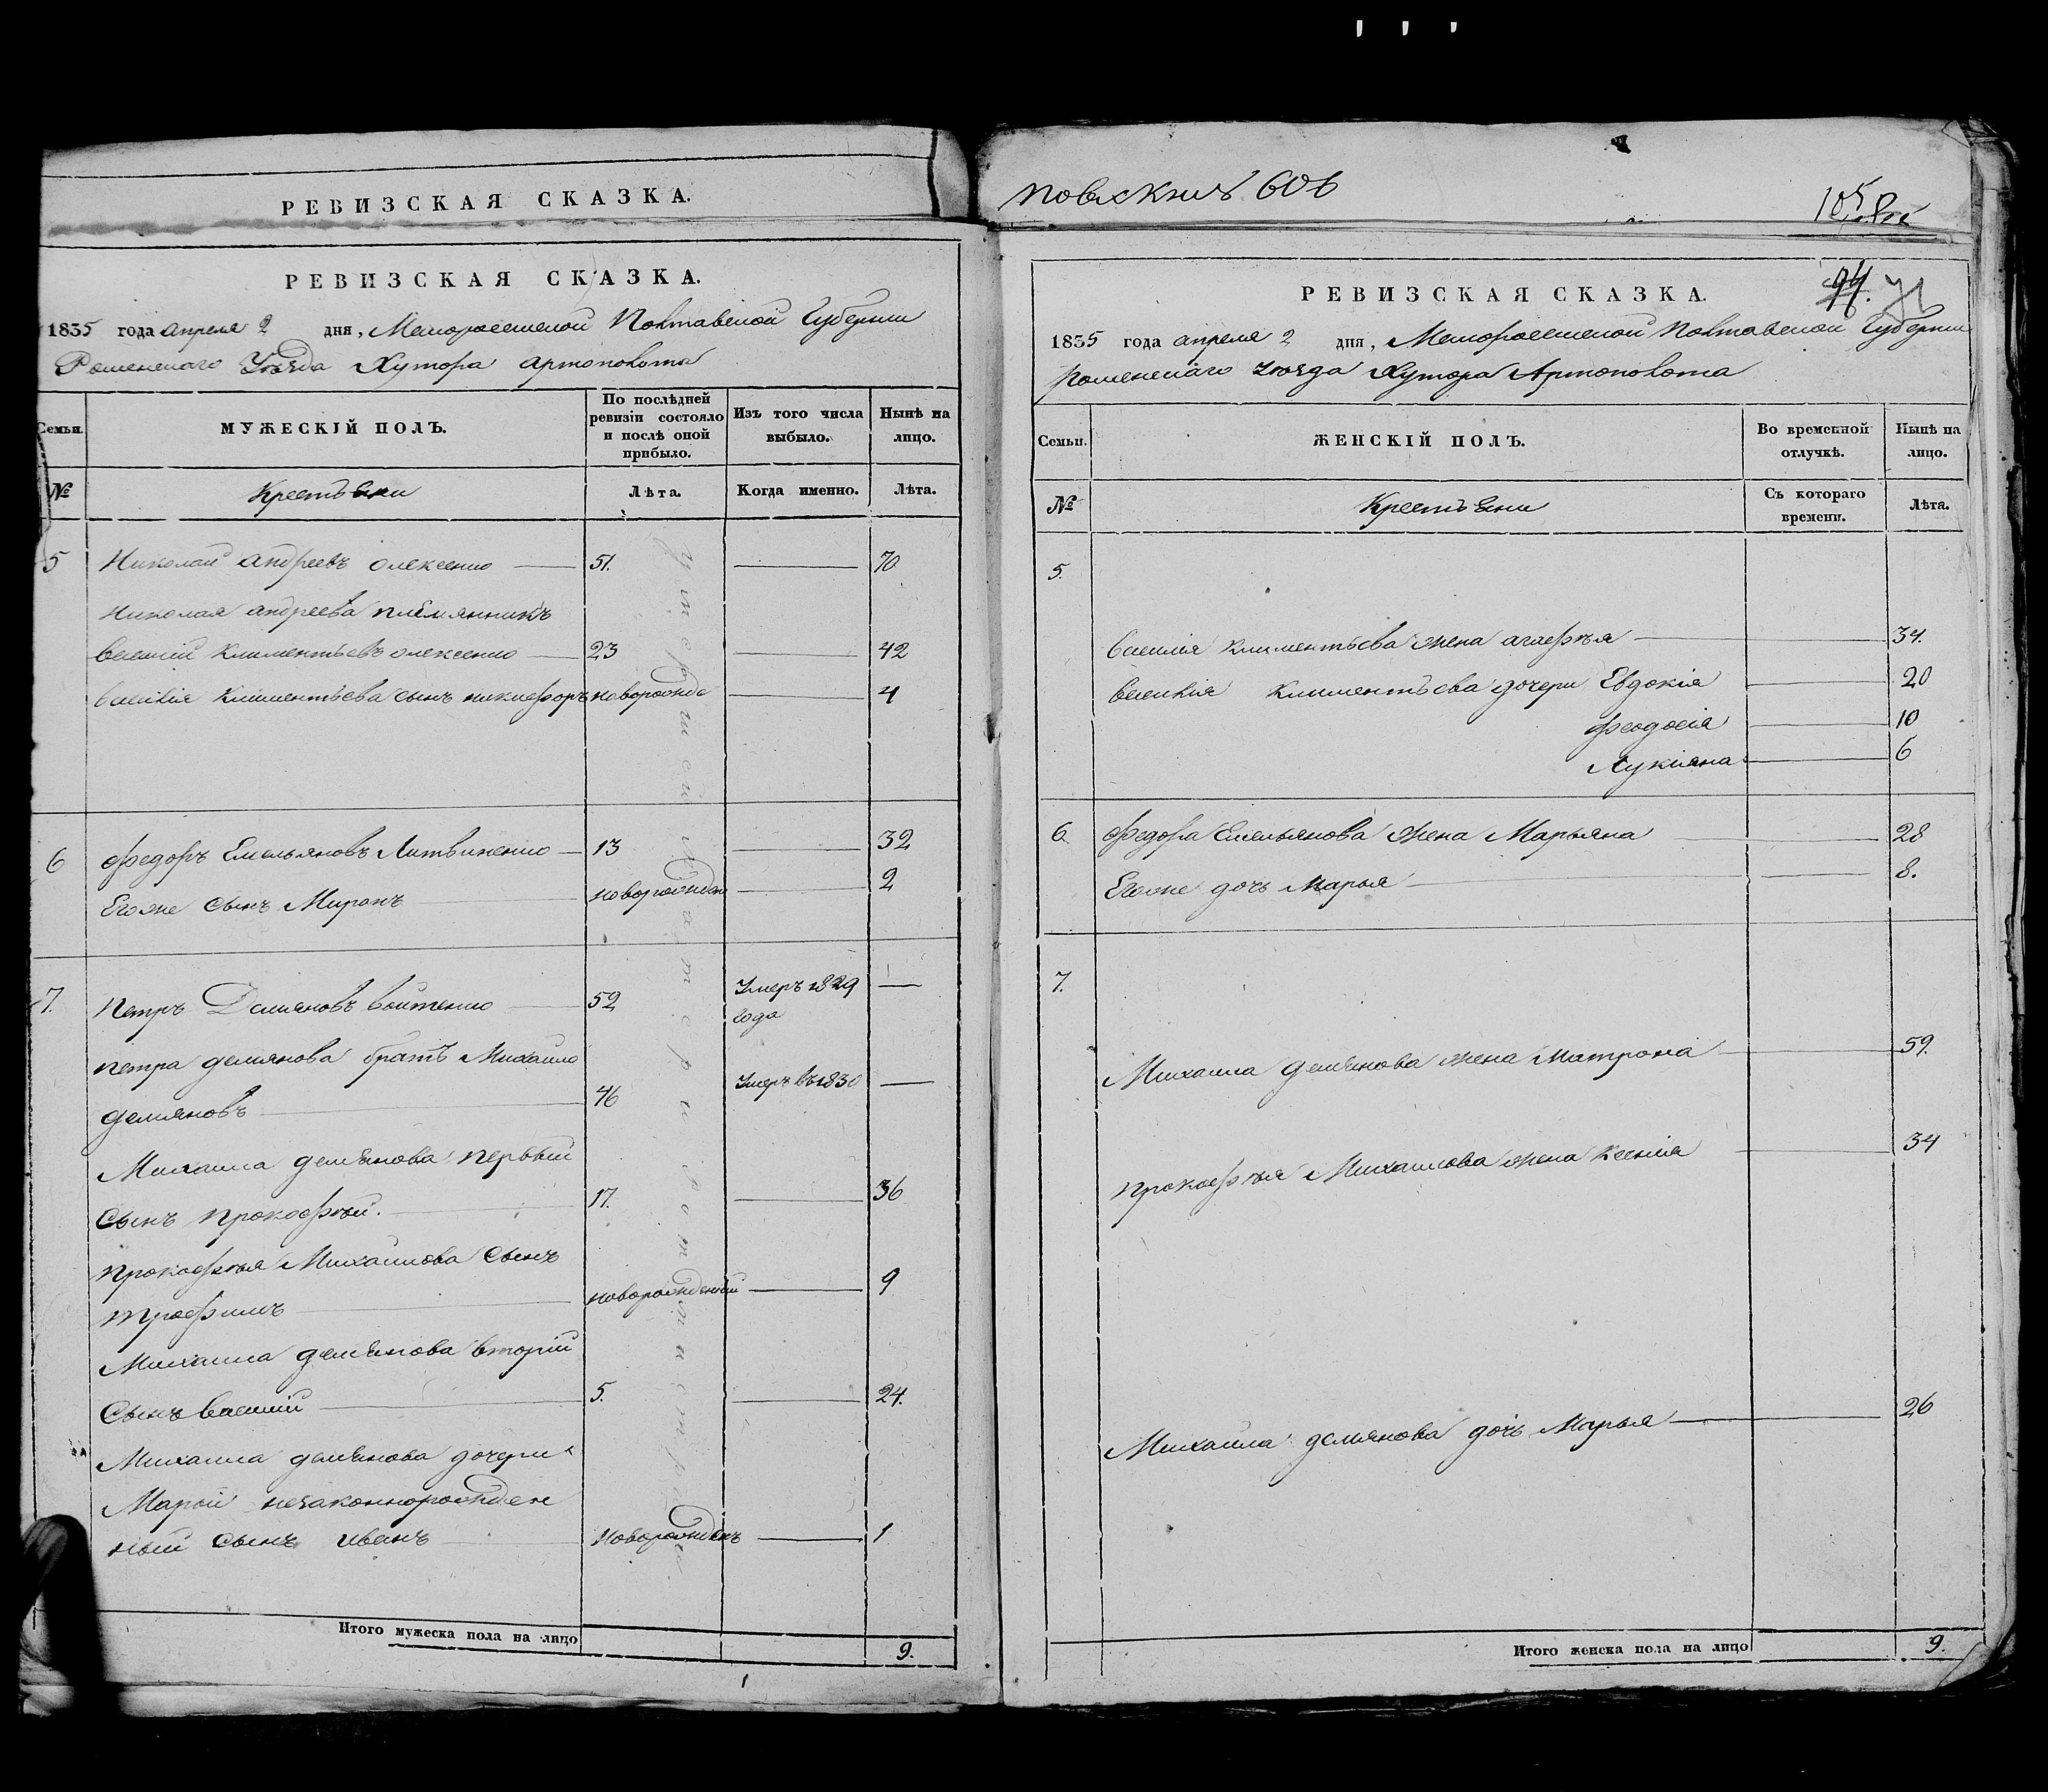 РЕВИЗСКАЯ СКАЗКА.
РЕВИЗСКАЯ СКАЗКА.
1835 года апреля 2 дня, Малоросійской Полтавской Губерніи
Роменского Уѣзда Хутора Артополота
Семьи.
МУЖЕСКІЙ ПОЛЪ.
По послѣдней ревизіи состояло и послѣ оной прибыло.
Изъ того числа выбыло.
Нынѣ на лицо.
№
Крестьяни
Лѣта.
Когда именно.
Лѣта.
5 Николай андреевъ олексенко 51. 70
Николая андреева племянникъ
василий климентьевъ олексенко 23 42
василія климентьева сынъ никифоръ новорожде 4
6 Федоръ Емельяновъ Литвиненко 13 32
Егоже сынъ Миронъ новорожден 2
7. Петръ Демяновъ войтенко 52 Умеръ 1829
года
петра демянова братъ Михайло
демяновъ 46 Умеръ въ 1830
Михаила демянова первый
сынъ прокофий. 17. 36
прокофья Михайлова сынъ
трофимъ новорожденый 9
Михаила демянова вторій
сынъ василий 5. 24.
Михаила демянова дочери
Марьи незаконнорожден
ный сынъ иванъ новорожденъ 1
Итого мужеска пола на лицо 9.
606
105
94.
РЕВИЗСКАЯ СКАЗКА.
1835 года апреля 2 дня, Малоросійской Полтавской Губерніи
Роменского Уѣзда Хутора Артополота
Семьи.
ЖЕНСКІЙ ПОЛЪ.
Во временной отлучкѣ.
Нынѣ на лицо.
№
Крестьяни
Съ котораго времени.
Лѣта.
5.
василія климентьева жена агафья 34.
василія климентьева дочери Евдокія 20
феодосія 10
Лукіяна 6
6. Федора Емельянова жена Марьяна 28
Егоже дочь Марья 8.
7.
Михаила демянова жена матрона 59.
прокофья Михайлова жена ксенія 34
Михаила демянова дочь Марья 26
Итого женска пола на лицо 9.